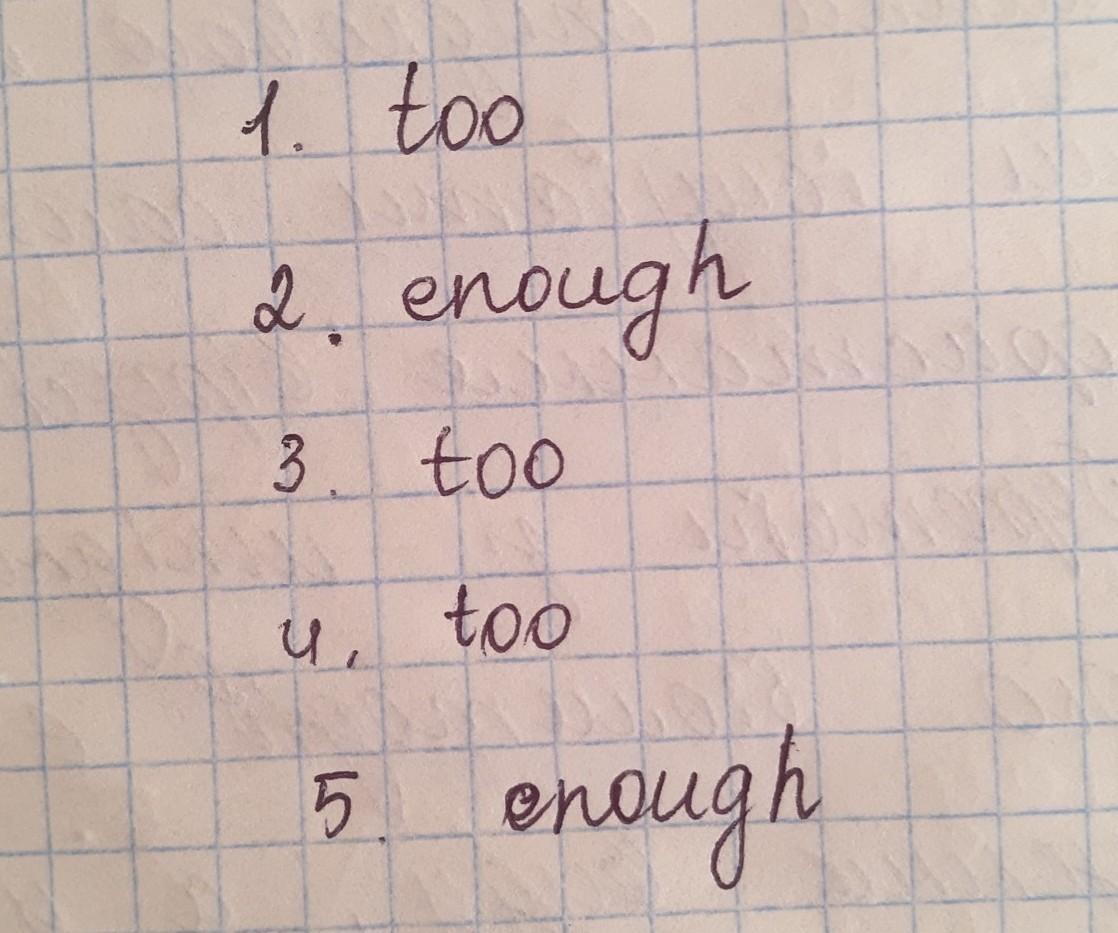 1. too
2. enough
3. too
4. too
5. enough